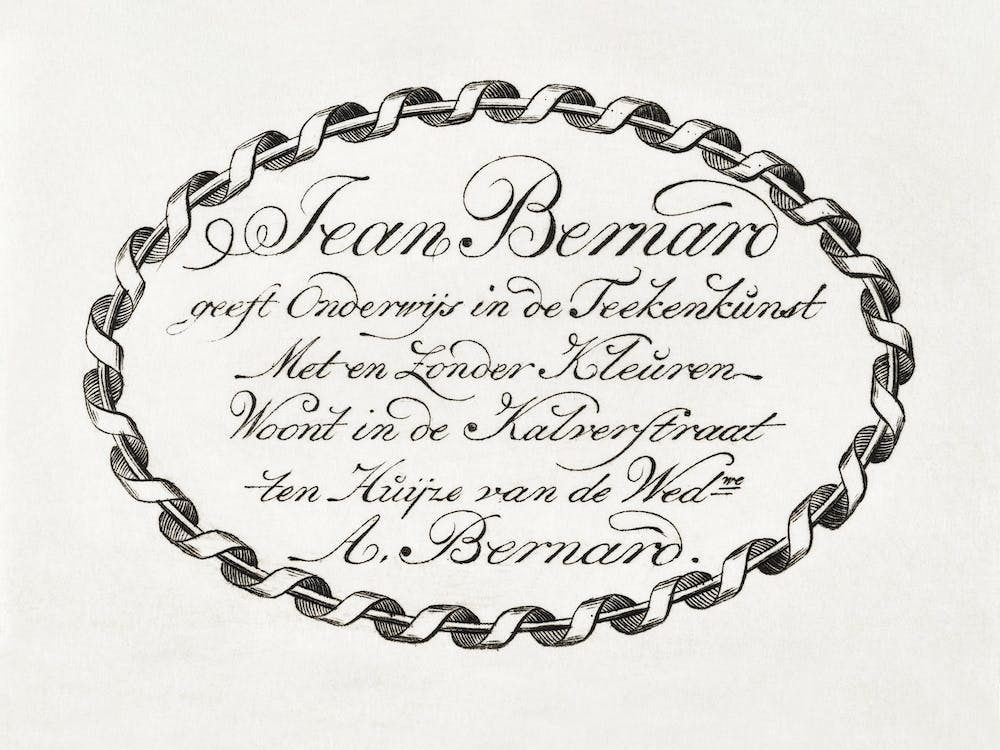 Jean Bernard
geeft Onderwijs in de Teekenkunst
Met en Zonder Kleuren
Woont in de Kalverstraat
ten Huijze van de Wed.we
A. Bernard.